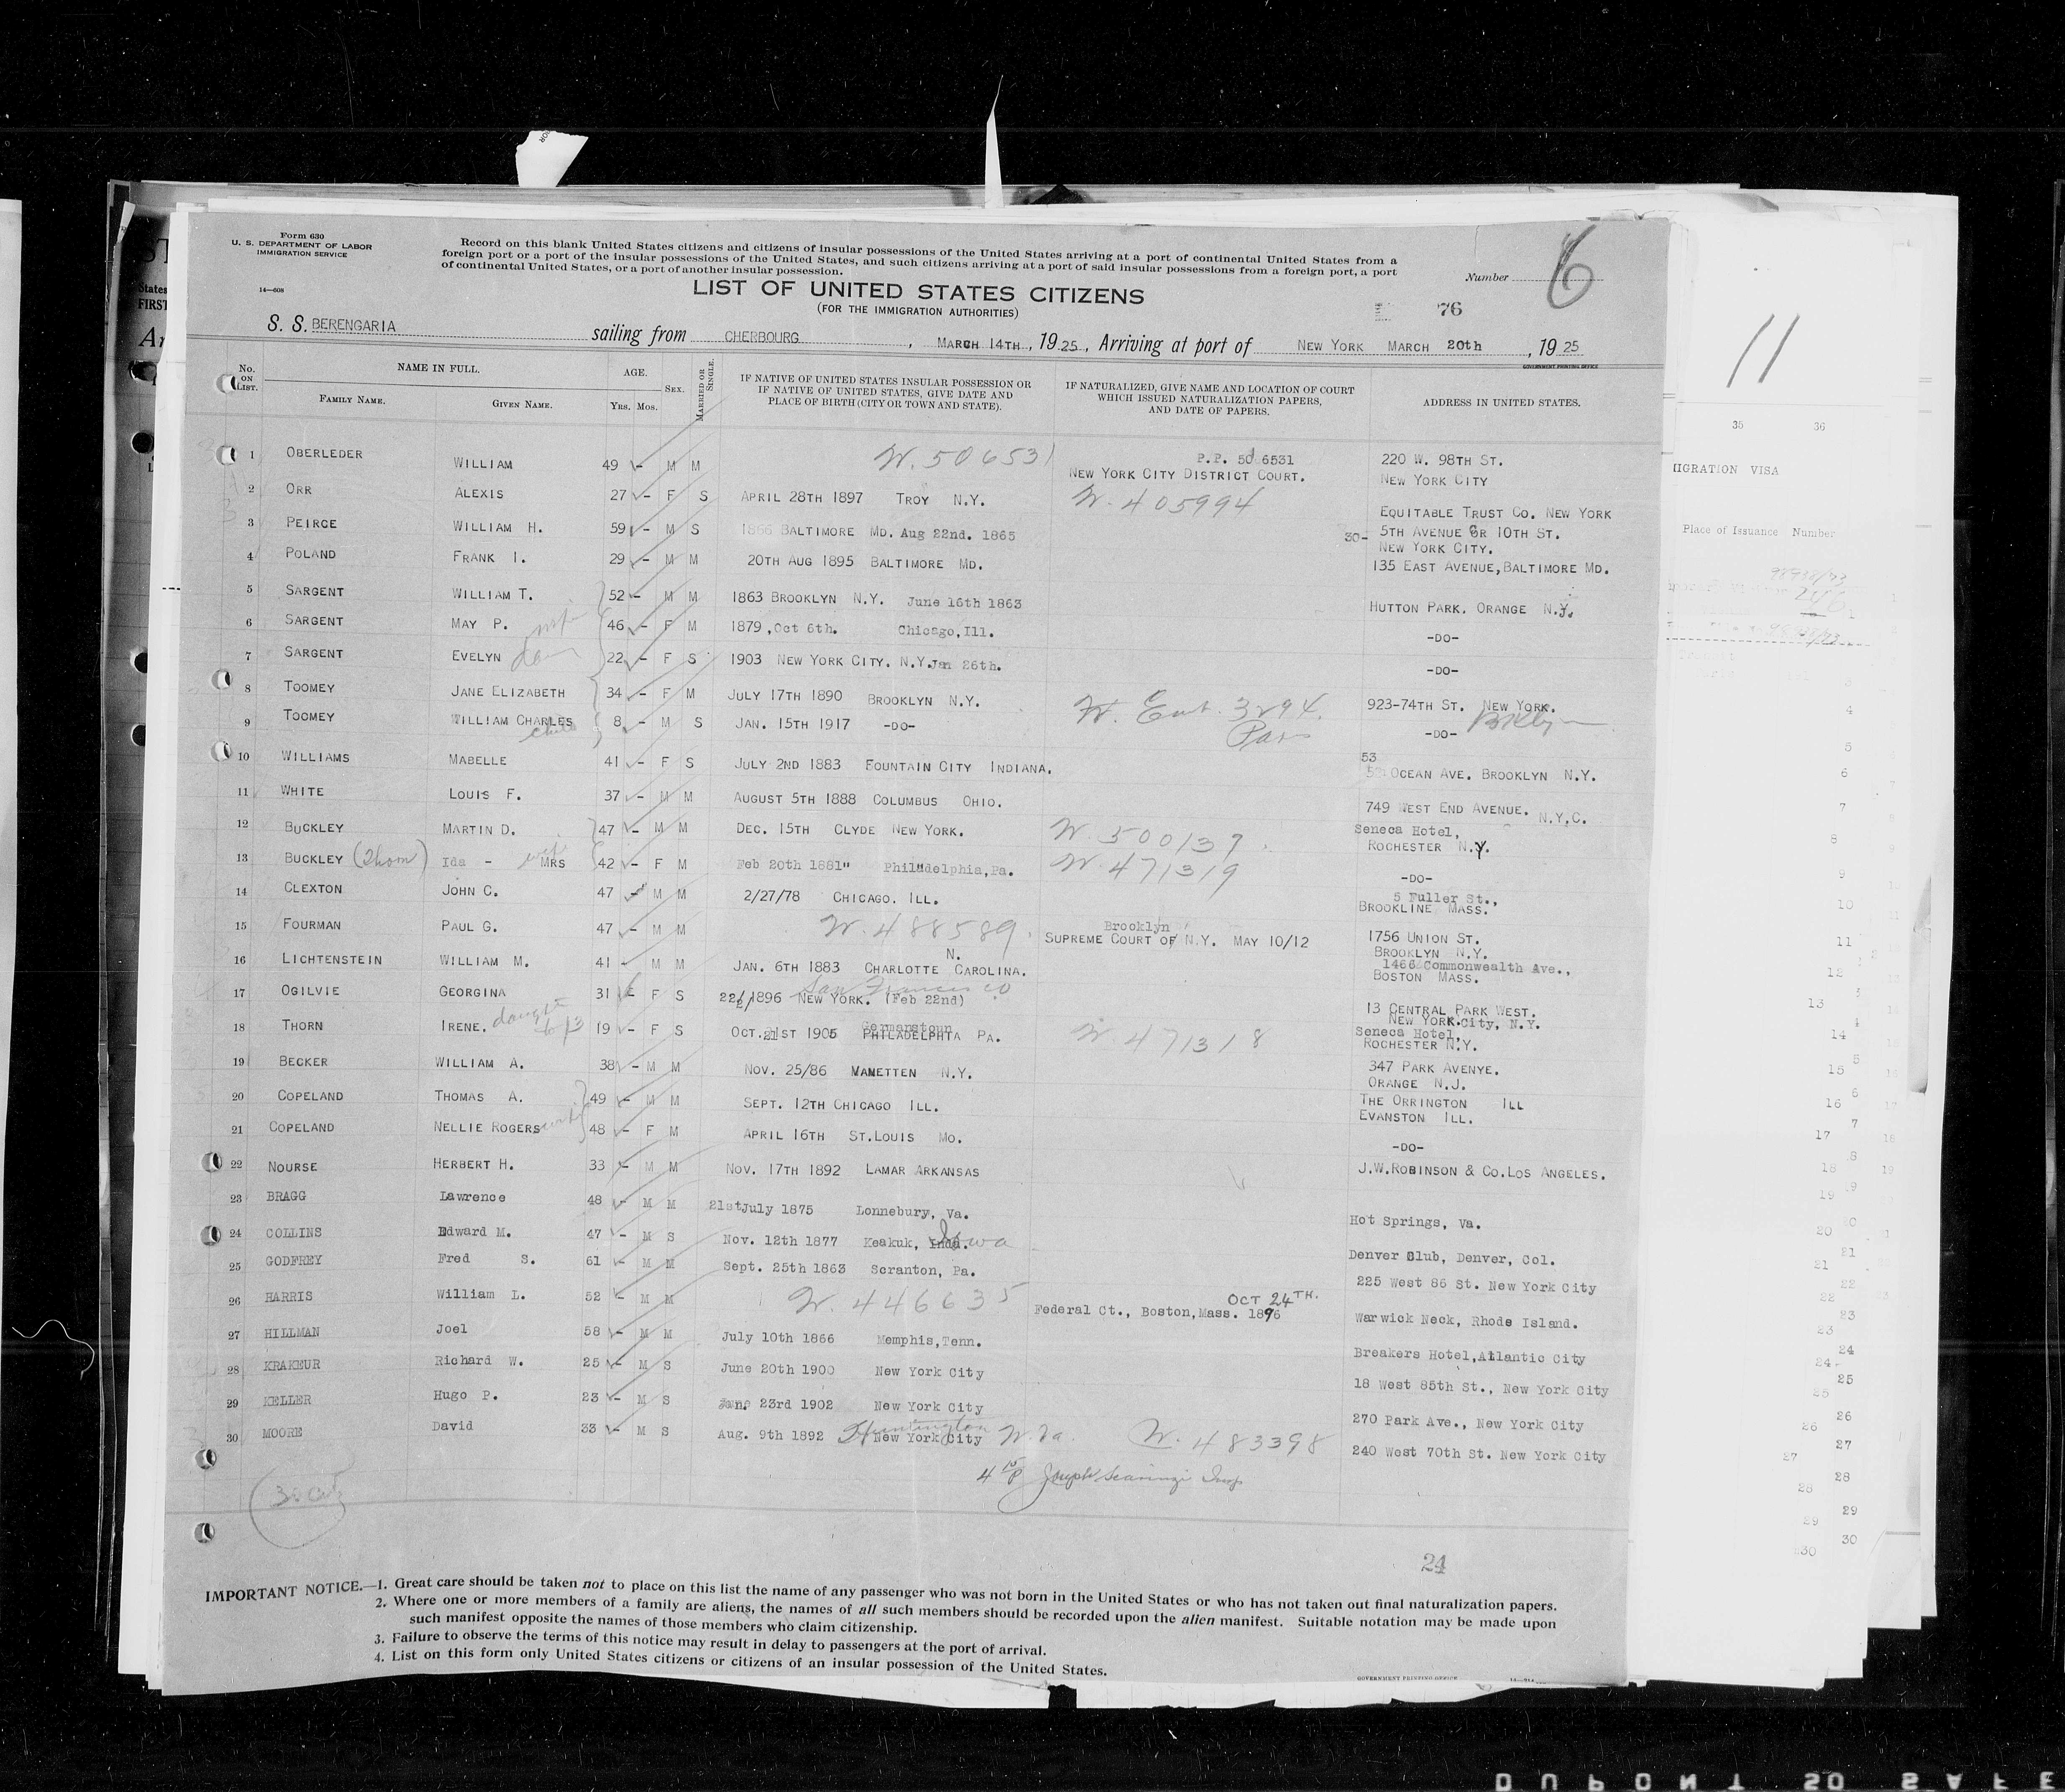 Form 630
U. S. DEPARTMENT OF LABOR
IMMIGRATION SERVICE
14—608
Record on this blank United States citizens and citizens of insular possessions of the United States arriving at a port of continental United States from a
foreign port or a port of the insular possessions of the United States, and such citizens arriving at a port of said insular possessions from a foreign port, a port
of continental United States, or a port of another insular possession.
Number 6
LIST OF UNITED STATES CITIZENS
(FOR THE IMMIGRATION AUTHORITIES)
76
S. S. BERENGARIA sailing from CHERBOURG, MARCH 14TH, 1925, Arriving at port of NEW YORK MARCH 20th, 1925
GOVERNMENT PRINTING OFFICE
No. ON LIST. NAME IN FULL. FAMILY NAME. GIVEN NAME. AGE. Yrs. Mos. SEX. MARRIED OR SINGLE. IF NATIVE OF UNITED STATES INSULAR POSSESSION OR IF NATIVE OF UNITED STATES, GIVE DATE AND PLACE OF BIRTH (CITY OR TOWN AND STATE). IF NATURALIZED, GIVE NAME AND LOCATION OF COURT WHICH ISSUED NATURALIZATION PAPERS, AND DATE OF PAPERS. ADDRESS IN UNITED STATES.
1 OBERLEDER WILLIAM 49 - M M W. 506531 P.P. 506531 NEW YORK CITY DISTRICT COURT. 220 W. 98TH ST. NEW YORK CITY
2 ORR ALEXIS 27 - F S APRIL 28TH 1897 TROY N.Y. W. 405994 EQUITABLE TRUST CO. NEW YORK
3 PEIRCE WILLIAM H. 59 - M S 1866 BALTIMORE MD. Aug 22nd. 1865 30- 5TH AVENUE OR 10TH ST. NEW YORK CITY.
4 POLAND FRANK I. 29 - M M 20TH AUG 1895 BALTIMORE MD. 135 EAST AVENUE, BALTIMORE MD.
5 SARGENT WILLIAM T. 52 - M M 1863 BROOKLYN N.Y. June 16th 1863 HUTTON PARK. ORANGE N.J.
6 SARGENT MAY P. wife 46 - F M 1879, Oct 6th. Chicago, Ill. -DO-
7 SARGENT EVELYN dau 22 - F S 1903 NEW YORK CITY. N.Y. Jan 26th. -DO-
8 TOOMEY JANE ELIZABETH 34 - F M JULY 17TH 1890 BROOKLYN N.Y. W. Ent. 3294. Paris 923-74TH ST. NEW YORK. Bklyn
9 TOOMEY WILLIAM CHARLES child 8 - M S JAN. 15TH 1917 -DO- -DO-
10 WILLIAMS MABELLE 41 - F S JULY 2ND 1883 FOUNTAIN CITY INDIANA. 53 OCEAN AVE. BROOKLYN N.Y.
11 WHITE LOUIS F. 37 - M M AUGUST 5TH 1888 COLUMBUS OHIO. 749 WEST END AVENUE. N.Y.C.
12 BUCKLEY MARTIN D. 47 - M M DEC. 15TH CLYDE NEW YORK. W. 500137. Seneca Hotel, ROCHESTER N.Y.
13 BUCKLEY (Thorn) Ida - wife MRS 42 - F M Feb 20th 1881" Philadelphia, Pa. W. 471319 -DO-
14 CLEXTON JOHN C. 47 - M M 2/27/78 CHICAGO. ILL. 5 Fuller St., BROOKLINE MASS.
15 FOURMAN PAUL G. 47 - M M W. 488589. Brooklyn SUPREME COURT OF N.Y. MAY 10/12 1756 UNION ST. BROOKLYN N.Y.
16 LICHTENSTEIN WILLIAM M. 41 - M M JAN. 6TH 1883 CHARLOTTE N. CAROLINA. 1466 Commonwealth Ave., BOSTON MASS.
17 OGILVIE GEORGINA 31 - F S 22/2/1896 NEW YORK. San Francisco (Feb 22nd) 13 CENTRAL PARK WEST. NEW YORK. City, N.Y.
18 THORN IRENE. daught of 13 19 - F S OCT. 21ST 1905 Germanstown PHILADELPHIA PA. W. 471318 Seneca Hotel, ROCHESTER N.Y.
19 BECKER WILLIAM A. 38 - M M NOV. 25/86 VANETTEN N.Y. 347 PARK AVENYE. ORANGE N.J.
20 COPELAND THOMAS A. 49 - M M SEPT. 12TH CHICAGO ILL. THE ORRINGTON ILL EVANSTON ILL.
21 COPELAND NELLIE ROGERS wife 48 - F M APRIL 16TH ST.LOUIS MO. -DO-
22 NOURSE HERBERT H. 33 - M M NOV. 17TH 1892 LAMAR ARKANSAS J.W.ROBINSON & CO. LOS ANGELES.
23 BRAGG Lawrence 48 - M M 21st July 1875 Lonnebury, Va. Hot Springs, Va.
24 COLLINS Edward M. 47 - M S Nov. 12th 1877 Keakuk, Inda. Iowa Denver Club, Denver, Col.
25 GODFREY Fred S. 61 - M M Sept. 25th 1863 Scranton, Pa. 225 West 86 St. New York City
26 HARRIS William L. 52 - M M W. 446635 Federal Ct., Boston, Mass. OCT 24TH. 1896 Warwick Neck, Rhode Island.
27 HILLMAN Joel 58 - M M July 10th 1866 Memphis, Tenn. Breakers Hotel, Atlantic City
28 KRAKEUR Richard W. 25 - M S June 20th 1900 New York City 18 West 85th St., New York City
29 KELLER Hugo P. 23 - M S June 23rd 1902 New York City 270 Park Ave., New York City
30 MOORE David 33 - M S Aug. 9th 1892 New York City Huntington W. Va. W. 483398 240 West 70th St. New York City
24
IMPORTANT NOTICE.—1. Great care should be taken not to place on this list the name of any passenger who was not born in the United States or who has not taken out final naturalization papers.
2. Where one or more members of a family are aliens, the names of all such members should be recorded upon the alien manifest. Suitable notation may be made upon
such manifest opposite the names of those members who claim citizenship.
3. Failure to observe the terms of this notice may result in delay to passengers at the port of arrival.
4. List on this form only United States citizens or citizens of an insular possession of the United States.
GOVERNMENT PRINTING OFFICE
11
35 36
MIGRATION VISA
Place of Issuance Number
DUPONT SAFE